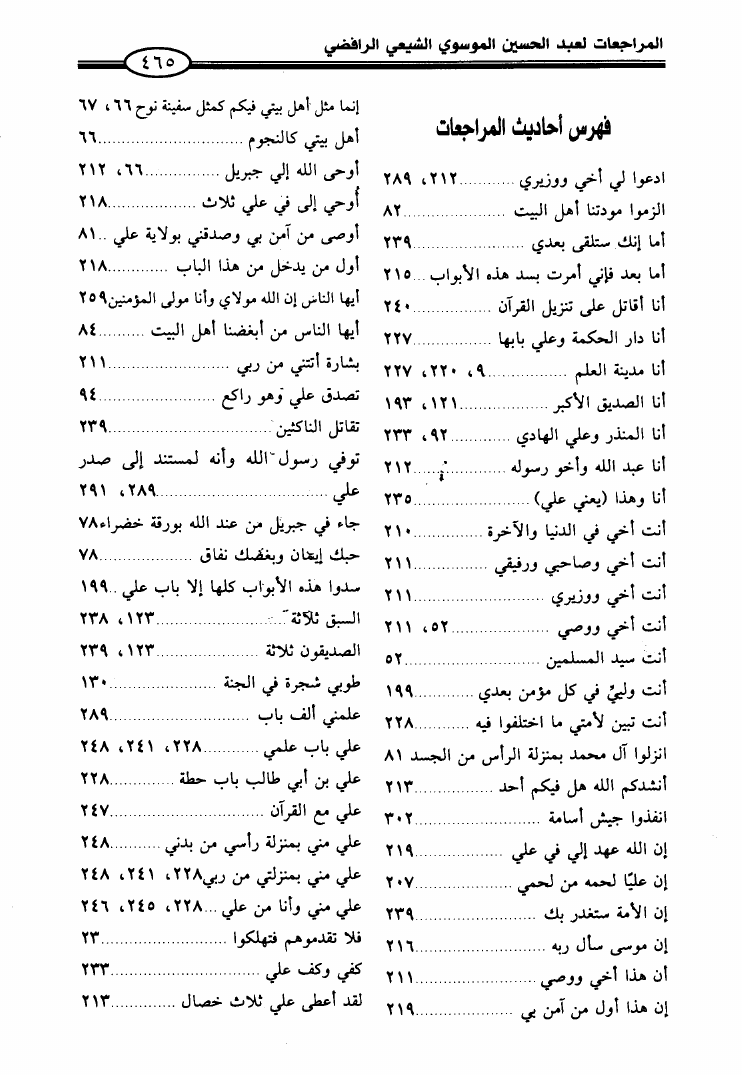 المراجعات لعبد الحسين الموسوي الشيعي الرافضي
٤٦٥
فهرس أحاديث المراجعات
ادعوا لي أخي ووزيري ............ ٢١٢، ٢٨٩
الزموا مودتنا أهل البيت ............ ٨٢
أما إنك ستلقى بعدي ............ ٢٣٩
أما بعد فإني أمرت بسد هذه الأبواب ... ٢١٥
أنا أقاتل على تنزيل القرآن ............ ٢٤٠
أنا دار الحكمة وعلي بابها ............ ٢٢٧
أنا مدينة العلم ............ ٩، ٢٢٠، ٢٢٧
أنا الصديق الأكبر ............ ١٢١، ١٩٣
أنا المنذر وعلي الهادي ............ ٩٢، ٢٣٣
أنا عبد الله وأخو رسوله ............ ٢١٢
أنا وهذا (يعني علي) ............ ٢٣٥
أنت أخي في الدنيا والآخرة ............ ٢١٠
أنت أخي وصاحبي ورفيقي ............ ٢١١
أنت أخي ووزيري ............ ٢١١
أنت أخي ووصي ............ ٥٢، ٢١١
أنت سيد المسلمين ............ ٥٢
أنت وليي في كل مؤمن بعدي ............ ١٩٩
أنت تبين لأمتي ما اختلفوا فيه ............ ٢٢٨
انزلوا آل محمد بمنزلة الرأس من الجسد ٨١
أنشدكم الله هل فيكم أحد ............ ٢١٣
انفذوا جيش أسامة ............ ٣٠٢
إن الله عهد إلي في علي ............ ٢١٩
إن عليًا لحمه من لحمي ............ ٢٠٧
إن الأمة ستغدر بك ............ ٢٣٩
إن موسى سأل ربه ............ ٢١٦
أن هذا أخي ووصي ............ ٢١١
إن هذا أول من آمن بي ............ ٢١٩
إنما مثل أهل بيتي فيكم كمثل سفينة نوح ٦٦، ٦٧
أهل بيتي كالنجوم ............ ٦٦
أوحى الله إلي جبريل ............ ٦٦، ٢١٢
أُوحي إلى في علي ثلاث ............ ٢١٨
أوصى من آمن بي وصدقني بولاية علي .. ٨١
أول من يدخل من هذا الباب ............ ٢١٨
أيها الناس إن الله مولاي وأنا مولى المؤمنين ٢٥٩
أيها الناس من أبغضنا أهل البيت .......... ٨٤
بشارة أتتني من ربي ............ ٢١١
تصدق علي وهو راكع ............ ٩٤
تقاتل الناكثين ............ ٢٣٩
توفي رسول الله وأنه لمستند إلى صدر
علي ............ ٢٨٩، ٢٩١
جاء في جبريل من عند الله بورقة خضراء ٧٨
حبك إيمان وبغضك نفاق ............ ٧٨
سدوا هذه الأبواب كلها إلا باب علي .. ١٩٩
السبق ثلاثة ............ ١٢٣، ٢٣٨
الصديقون ثلاثة ............ ١٢٣، ٢٣٩
طوبي شجرة في الجنة ............ ١٣٠
علمني ألف باب ............ ٢٨٩
علي باب علمي ............ ٢٢٨، ٢٤١، ٢٤٨
علي بن أبي طالب باب حطة ............ ٢٢٨
علي مع القرآن ............ ٢٤٧
علي مني بمنزلة رأسي من بدني .......... ٢٤٨
علي مني بمنزلتي من ربي ٢٢٨، ٢٤١، ٢٤٨
علي مني وأنا من علي ... ٢٢٨، ٢٤٥، ٢٤٦
فلا تقدموهم فتهلكوا ............ ٢٣
كفي وكف علي ............ ٢٣٣
لقد أعطى علي ثلاث خصال ............ ٢١٣